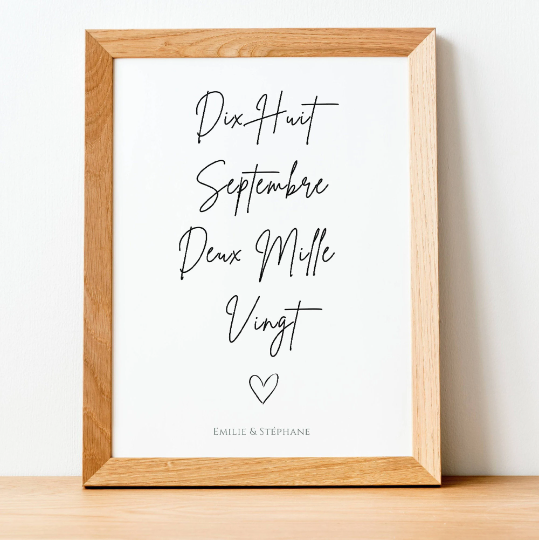 Dix Huit
Septembre
Deux Mille
Vingt
Emilie & Stéphane